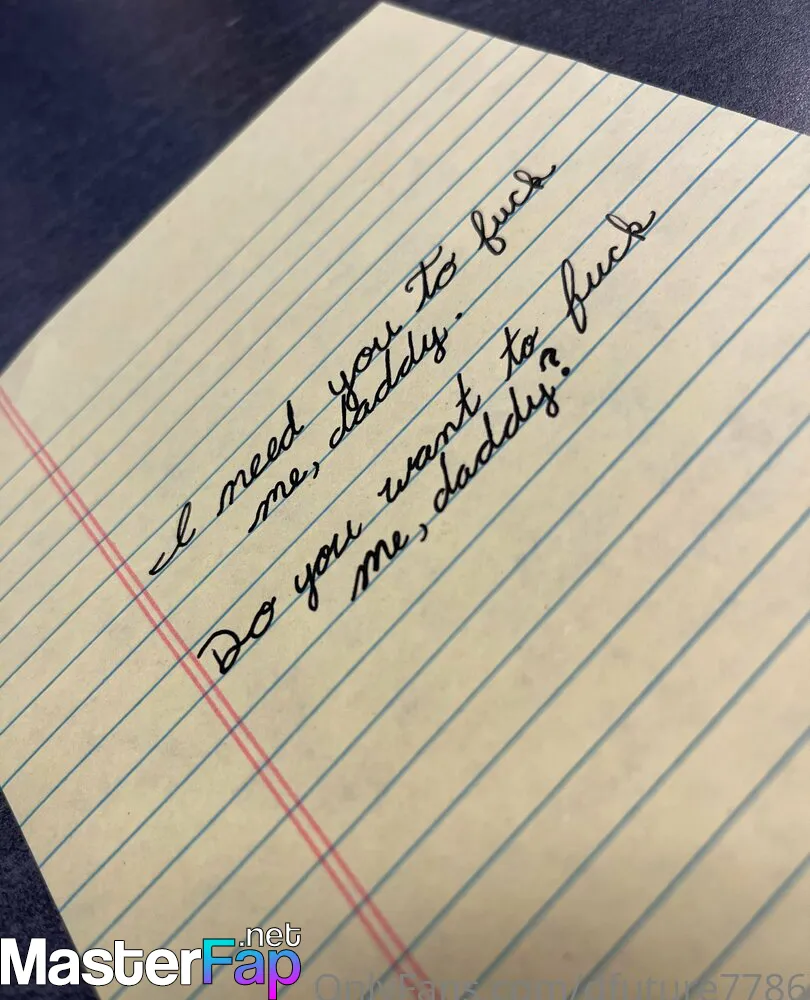 I need you to fuck
me, daddy.
Do you want to fuck
me, daddy?
MasterFap.net